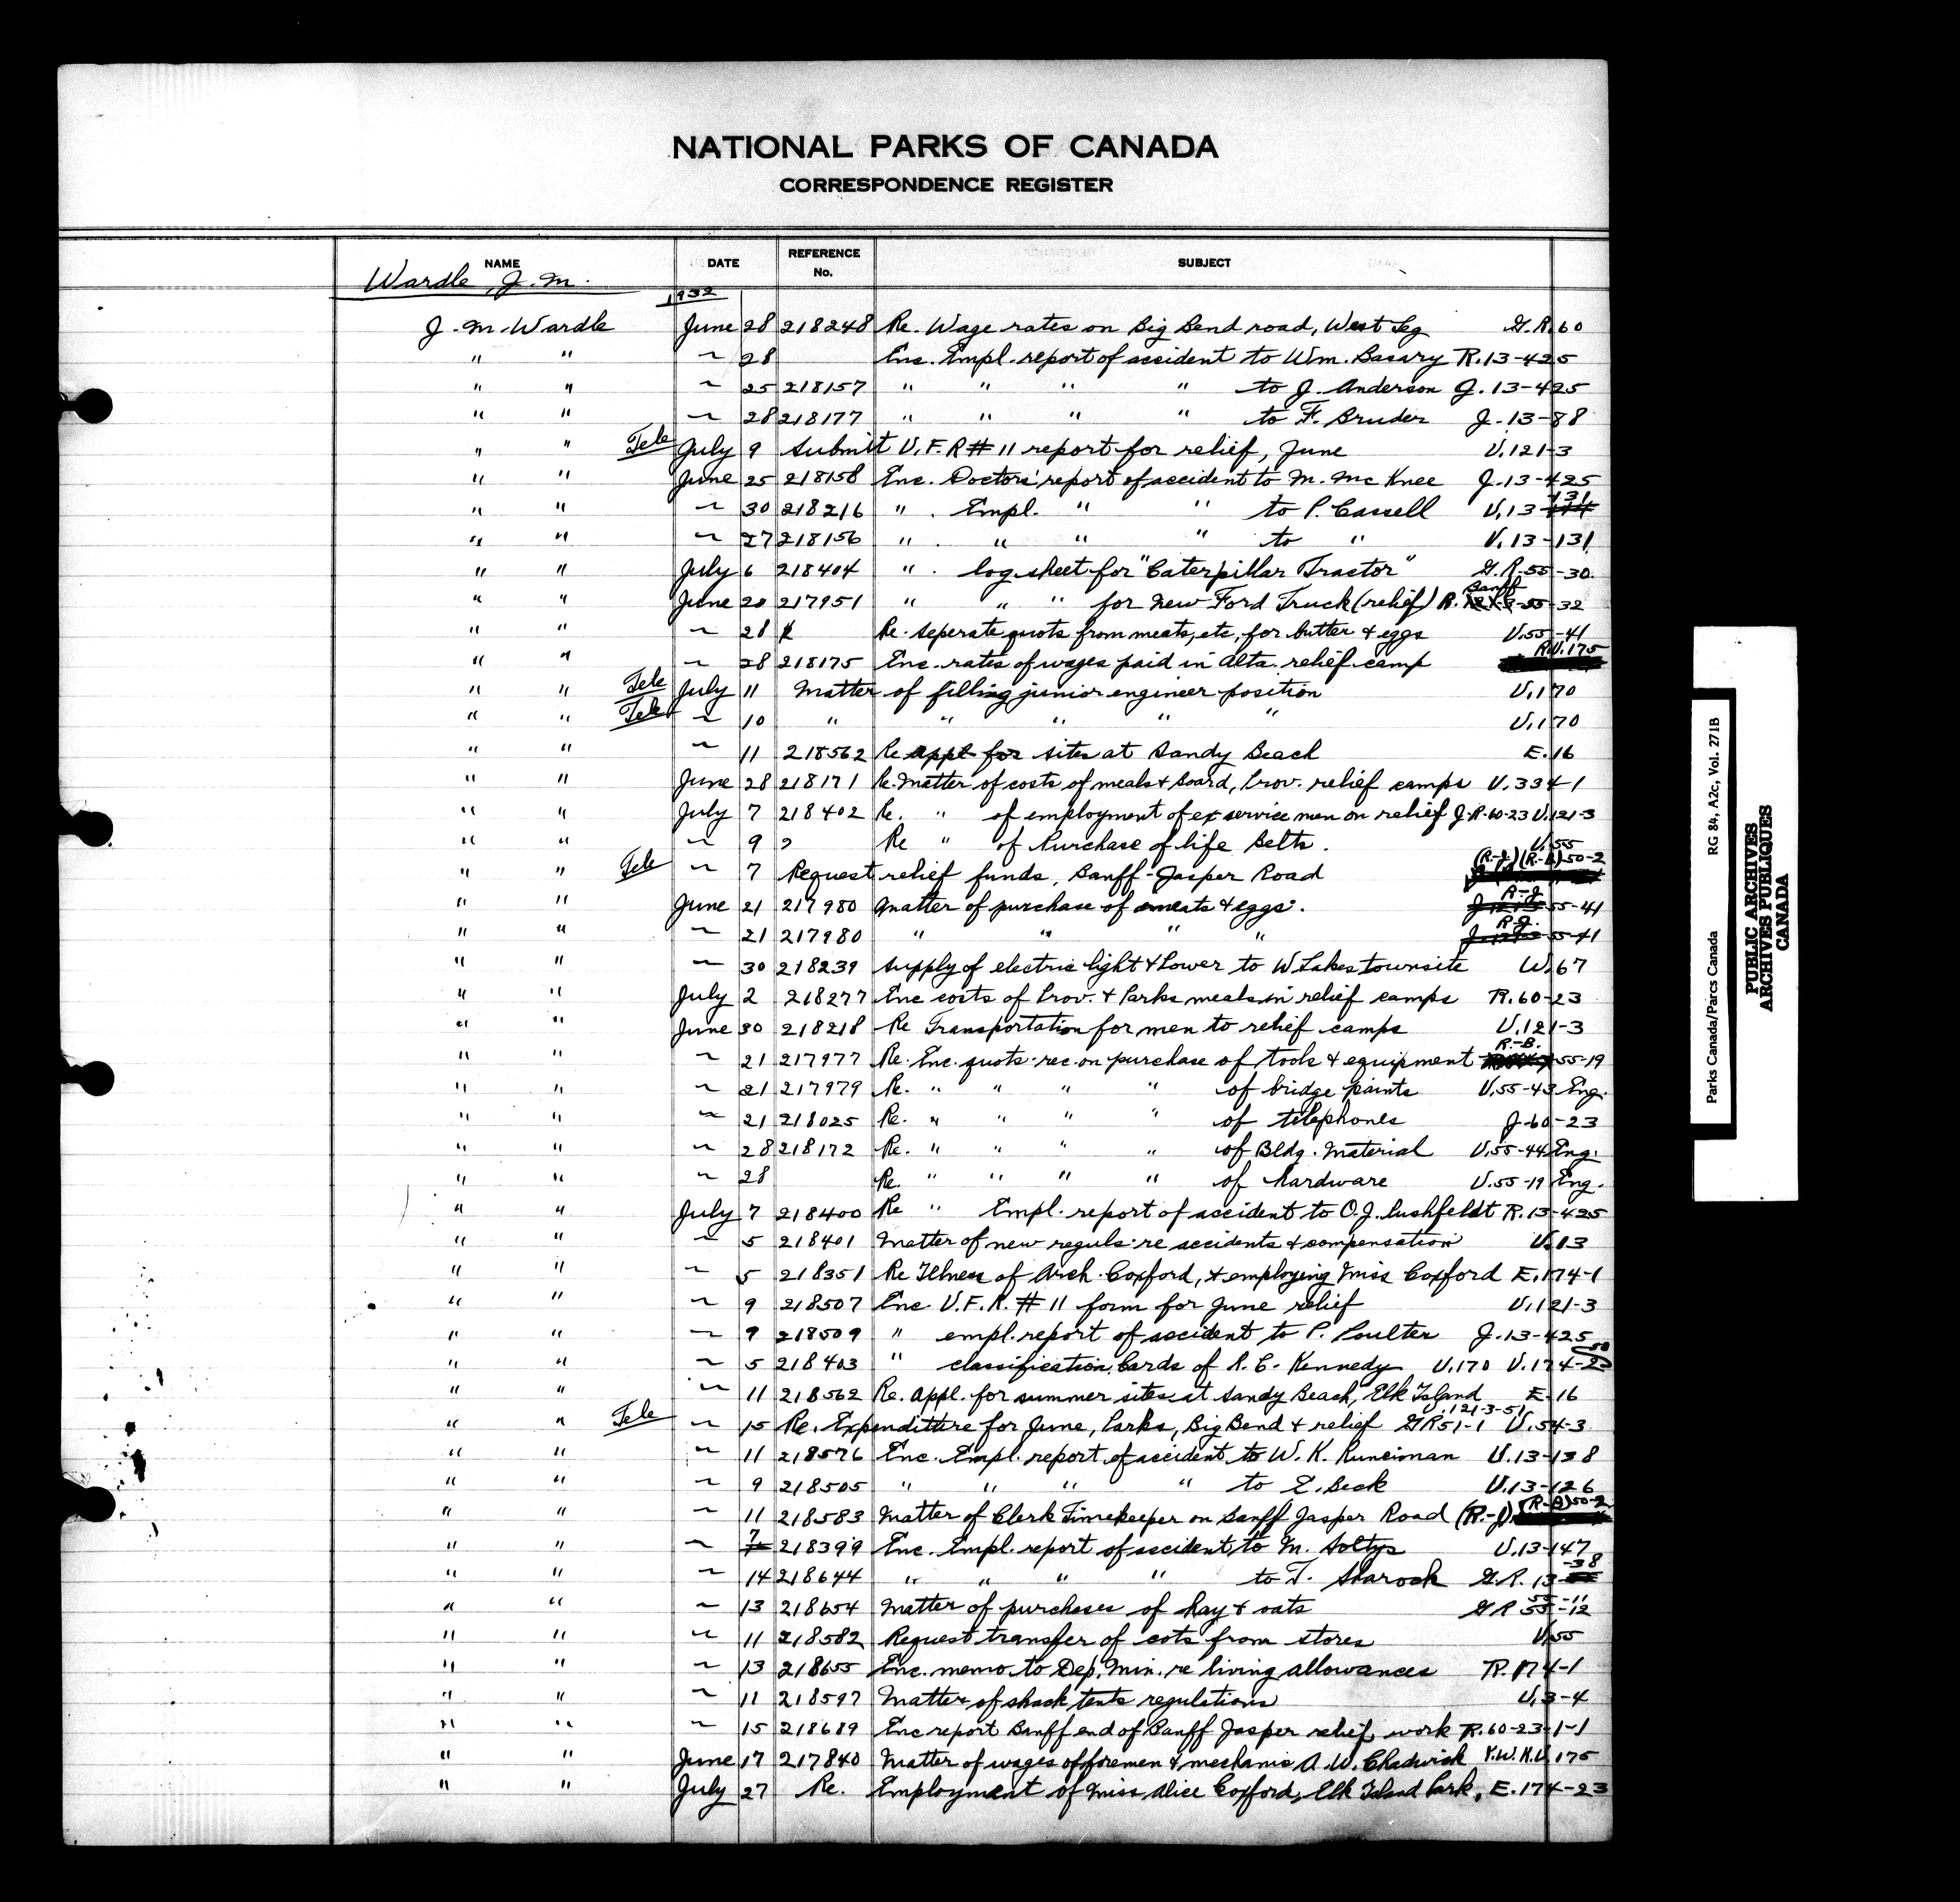 NATIONAL PARKS OF CANADA
CORRESPONDENCE REGISTER
NAME DATE REFERENCE No. SUBJECT
Wardle, J. M.
1932
J. M. Wardle June 28 218248 Re. Wage rates on Big Bend road, West Leg G.R. 60
" " ~ 28 Enc. Empl. report of accident to Wm. Basary R. 13-425
" " ~ 25 218157 " " " " to J. Anderson J. 13-425
" " ~ 28 218177 " " " " to F. Bruder J. 13-88
" " Tele July 9 Submit U.F.R # 11 report for relief, June U. 121-3
" " June 25 218158 Enc. Doctors' report of accident to M. McKnee J. 13-425
" " ~ 30 218216 " . Empl. " " to P. Cassell U. 13-131
" " ~ 27 218156 " . " " " to " U. 13-131
" " July 6 218404 " . log sheet for "Caterpillar Tractor" G.R-55-30.
" " June 20 217951 " " " for new Ford Truck (relief) R. Banff 55-32
" " ~ 28 Re. seperate quots from meats, etc, for butter & eggs U. 55-41
" " ~ 28 218175 Enc. rates of wages paid in Alta. relief camp R.U. 175
" " Tele July 11 Matter of filling junior engineer position U. 170
" " Tele ~ 10 " " " " " U. 170
" " ~ 11 218562 Re appl for sites at Sandy Beach E. 16
" " June 28 218171 Re. Matter of costs of meals & Board, Prov. relief camps U. 334-1
" " July 7 218402 Re. " of employment of ex service men on relief J-R-60-23 U. 121-3
" " ~ 9 ? Re " of Purchase of life Belts. U. 55
" " Tele ~ 7 Request relief funds, Banff-Jasper Road (R.-J.) (R.-B.) 50-2
" " June 21 217980 Matter of purchase of meats & eggs. R-J. 55-41
" " ~ 21 217980 " " " " R-J. 55-41
" " ~ 30 218239 Supply of electric light & Power to W Lakes townsite W. 67
" " July 2 218277 Enc costs of Prov. & Parks meals in relief camps R. 60-23
" " June 30 218218 Re Transportation for men to relief camps U. 121-3
" " ~ 21 217977 Re. Enc. quots. rec. on purchase of tools & equipment R.-B. 55-19
" " ~ 21 217979 Re. " " " " of bridge paints U. 55-43 Eng.
" " ~ 21 218025 Re. " " " " of telephones J-60-23
" " ~ 28 218172 Re. " " " " of Bldg. Material U. 55-44 Eng.
" " ~ 28 Re. " " " " of hardware U. 55-19 Eng.
" " July 7 218400 Re " Empl. report of accident to O. J. Pushfeldt R. 13-425
" " ~ 5 218401 Matter of new reguls. re accidents & compensation U. 13
" " ~ 5 218351 Re Illness of Arch. Coxford, & employing Miss Coxford E. 174-1
" " ~ 9 218507 Enc U.F.R. # 11 form for June relief U. 121-3
" " ~ 9 218509 " empl. report of accident to P. Poulter J. 13-425
" " ~ 5 218403 " classification Cards of R. C. Kennedy U. 170 U. 174-250
" " ~ 11 218562 Re. appl. for summer sites at Sandy Beach, Elk Island E. 16
" " Tele ~ 15 Re. Expenditure for June, Parks, Big Bend & relief GR 51-1 U. 121-3-51 U. 54-3
" " ~ 11 218576 Enc. Empl. report of accident to W. K. Runciman U. 13-138
" " ~ 9 218505 " " " " to E. Beck U. 13-126
" " ~ 11 218583 Matter of Clerk Timekeeper on Banff Jasper Road (R.-J) (R-B) 50-2
" " ~ 7 218399 Enc. Empl. report of accident to M. Soltys U. 13-147
" " ~ 14 218644 " " " " to T. Sharock G.R. 13-38
" " ~ 13 218654 Matter of purchases of hay & oats GR 55-11 55-12
" " ~ 11 218582 Request transfer of cots from stores U. 55
" " ~ 13 218655 Enc. memo. to Dep. Min. re living allowances R. 174-1
" " ~ 11 218597 Matter of shack tents regulations U. 3-4
" " ~ 15 218689 Enc report Banff end of Banff Jasper relief work R. 60-23-1-1
" " June 17 217840 Matter of wages of foremen & mechanic A. W. Chadwick Y.W.K.U. 175
" " July 27 Re. Employment of Miss Alice Coxford, Elk Island Park, E. 174-23
Parks Canada/Parcs Canada RG 84, A2c, Vol. 271B
PUBLIC ARCHIVES
ARCHIVES PUBLIQUES
CANADA